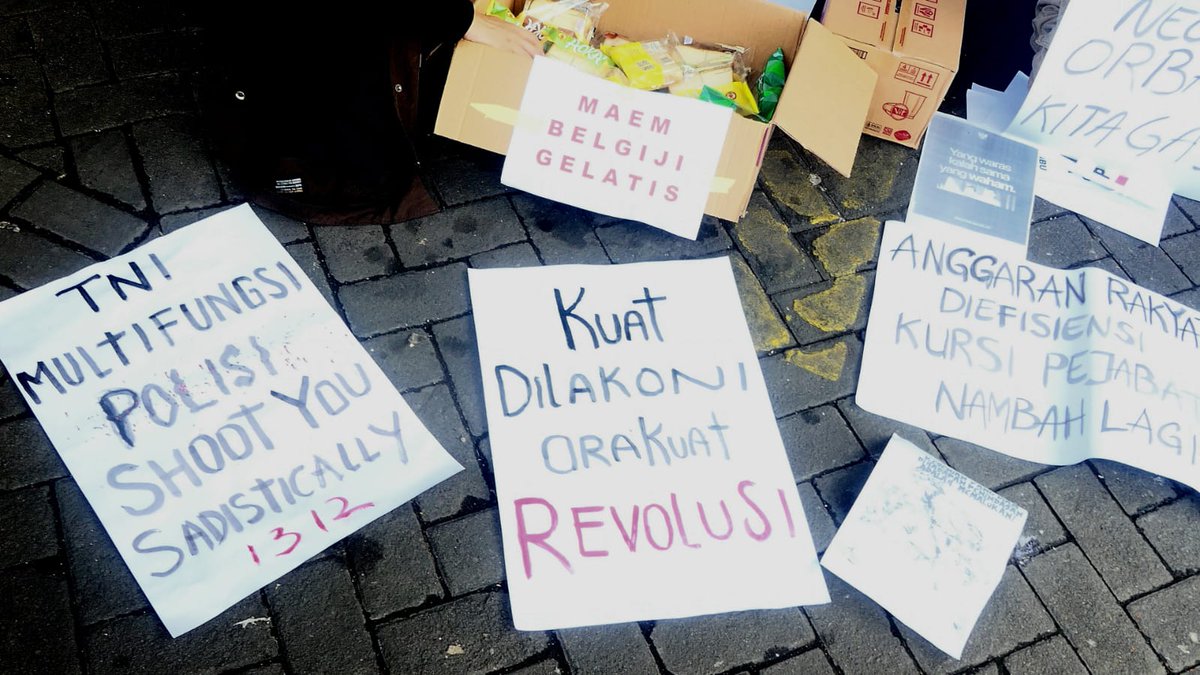 MAEM
BELGIJI
GELATIS
NEO
ORBA
KITAGA
Yang waras
kalah sama
yang waham.
TNI
MULTIFUNGSI
POLISI
SHOOT YOU
SADISTICALLY
1312
KUAT
DILAKONI
ORAKUAT
REVOLUSI
ANGGARAN RAKYAT
DIEFISIENSI
KURSI PEJABAT
NAMBAH LAGI